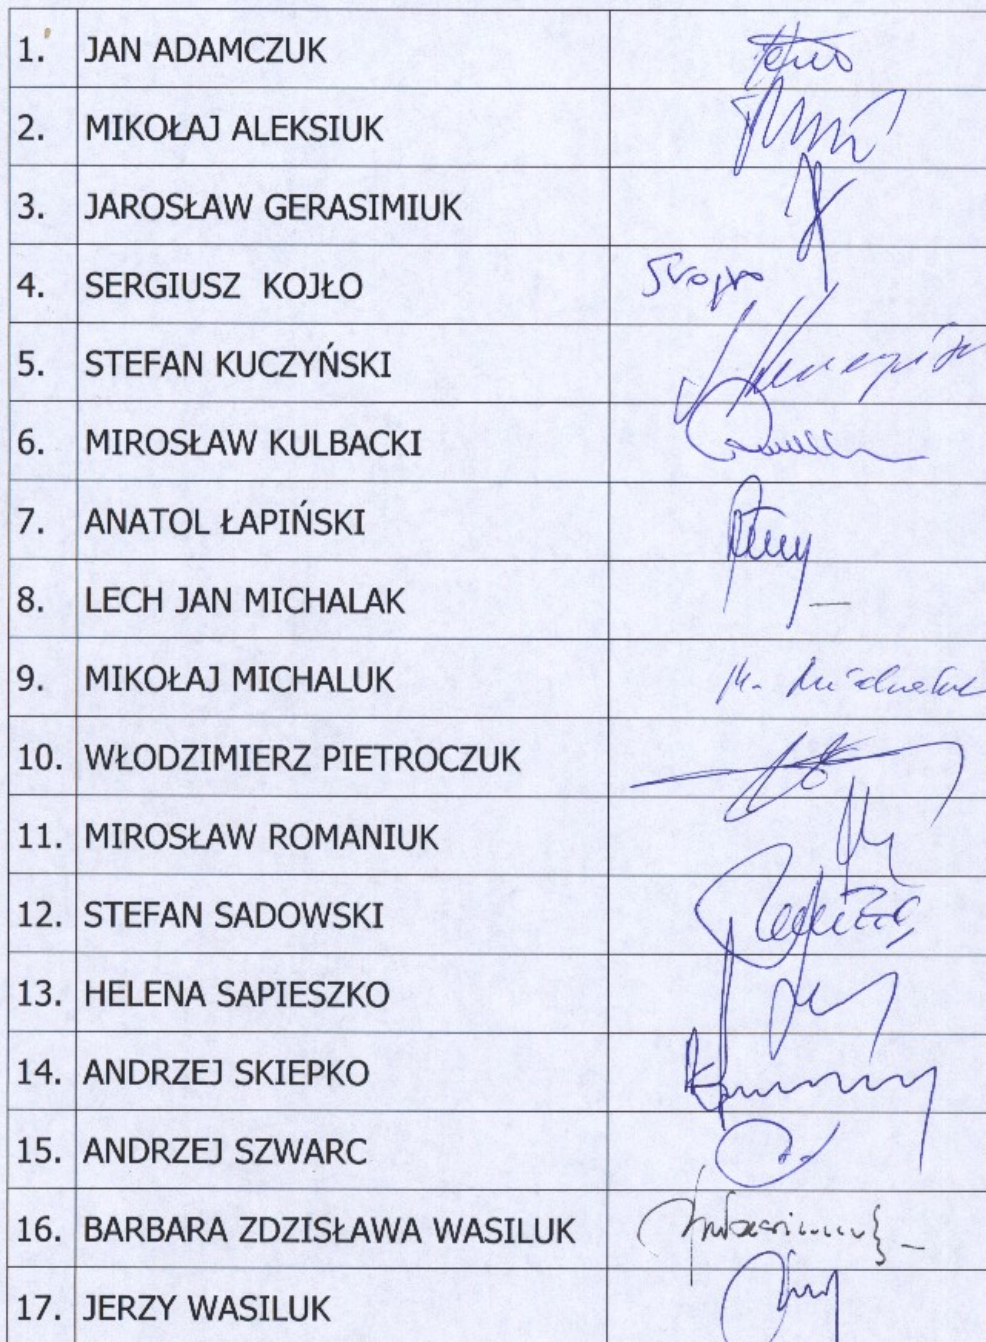 1. JAN ADAMCZUK
2. MIKOŁAJ ALEKSIUK
3. JAROSŁAW GERASIMIUK
4. SERGIUSZ KOJŁO
5. STEFAN KUCZYŃSKI
6. MIROSŁAW KULBACKI
7. ANATOL ŁAPIŃSKI
8. LECH JAN MICHALAK
9. MIKOŁAJ MICHALUK M. Michaluk
10. WŁODZIMIERZ PIETROCZUK
11. MIROSŁAW ROMANIUK
12. STEFAN SADOWSKI
13. HELENA SAPIESZKO
14. ANDRZEJ SKIEPKO
15. ANDRZEJ SZWARC
16. BARBARA ZDZISŁAWA WASILUK
17. JERZY WASILUK